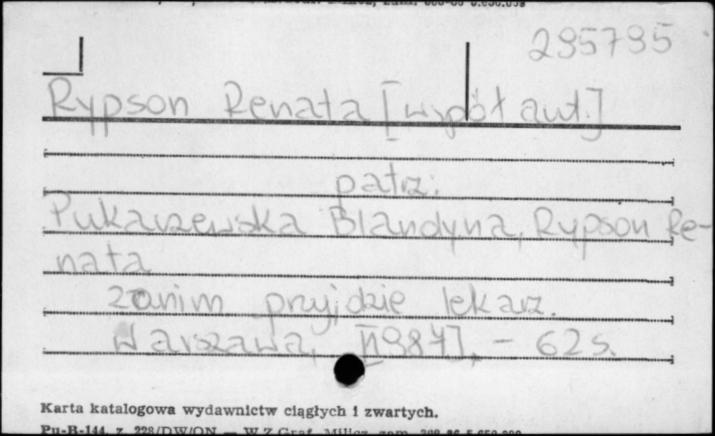 295795
Rypson Renata [współaut.]
patrz:
Pukarzewska Blandyna, Rypson Re-
nata
Zanim przyjdzie lekarz.
Warszawa, [1984]. - 62 s.
Karta katalogowa wydawnictw ciągłych i zwartych.
Pu-R-144, z. 228/DW/ON — W Z Graf. Milicz, zam.